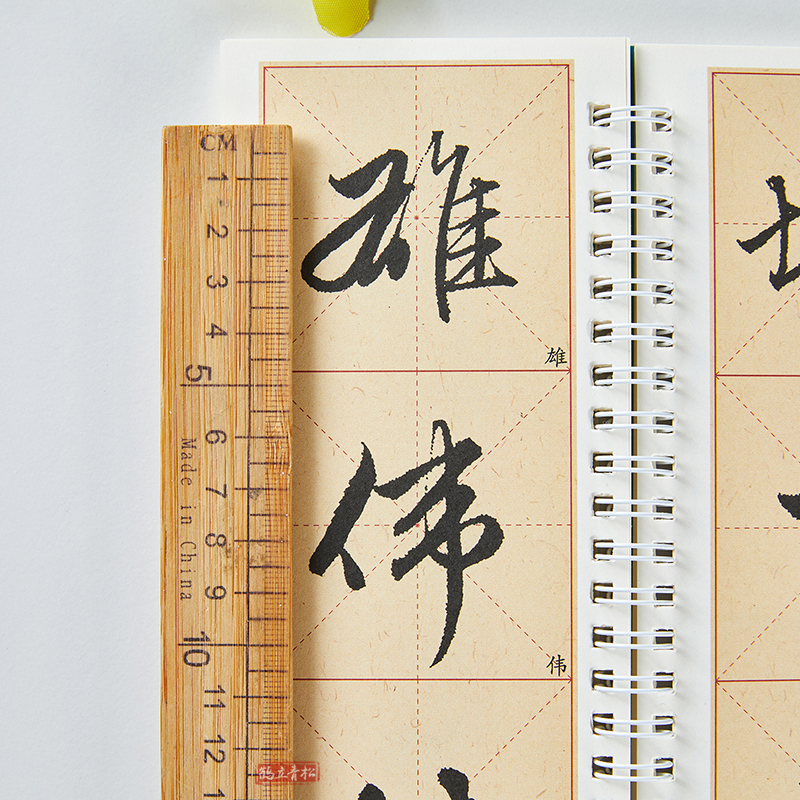 CM
1
2
3
4
5
6
7
8
9
10
11
12
Made in China
雄
雄
伟
伟
鹤立青松